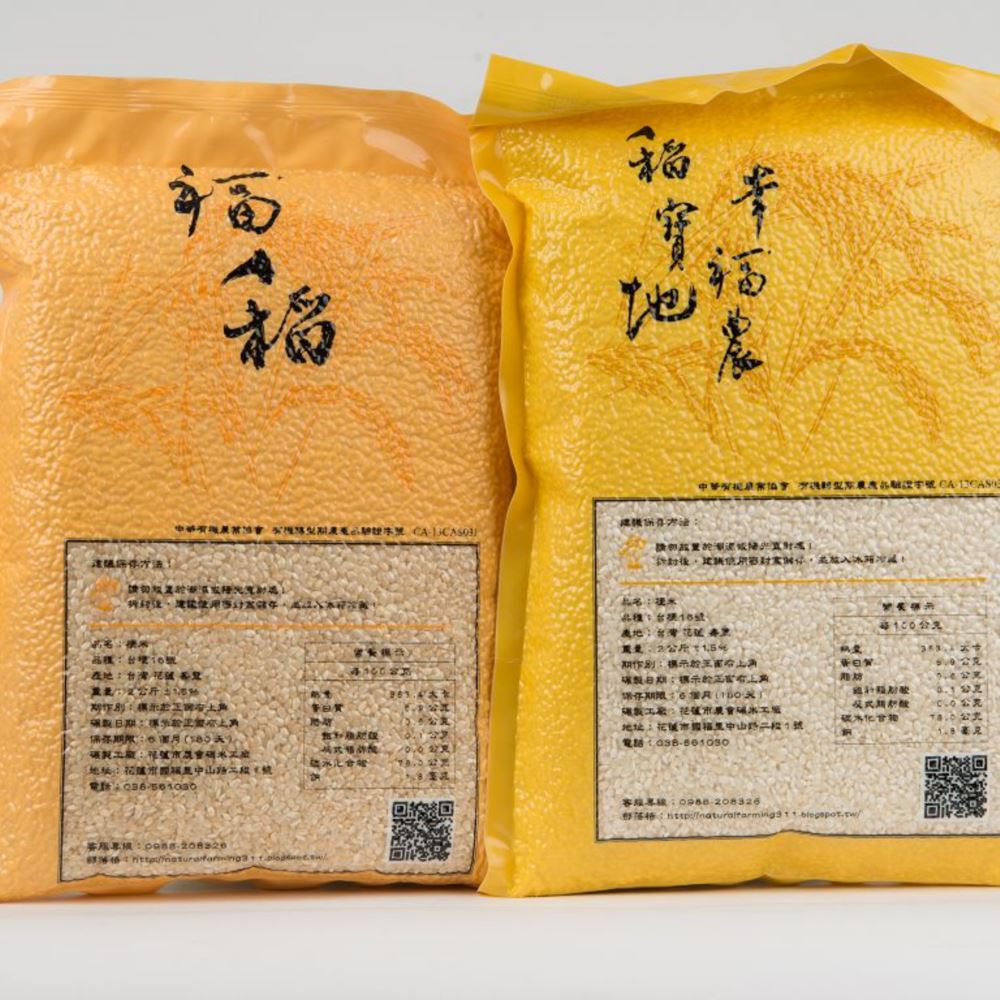 福
稻
中華有機農業協會 有機轉型期農產品驗證字號 CA-13CAS031
建議保存方法：
請勿放置於潮濕或陽光直射處！
拆封後，建議使用密封蓋儲存，並放入冰箱冷藏！
品名：粳米
品種：台粳16號
產地：台灣 花蓮 壽豐
重量：2公斤 ±1.5%
期作別：標示於正面右上角
碾製日期：標示於正面右上角
保存期限：6個月(180天)
碾製工廠：花蓮市農會碾米工廠
地址：花蓮市國福里中山路二段1號
電話：038-561030
營養標示
每100公克
熱量 353.4大卡
蛋白質 6.9公克
脂肪 0.6公克
飽和脂肪酸 0.1公克
反式脂肪酸 0.0公克
碳水化合物 78.0公克
鈉 1.8毫克
客服專線：0988-208326
部落格：http://naturalfarming311.blogspot.tw/
幸福農
稻寶地
中華有機農業協會 有機轉型期農產品驗證字號 CA-13CAS03
建議保存方法：
請勿放置於潮濕或陽光直射處！
拆封後，建議使用密封蓋儲存，並放入冰箱冷藏！
品名：粳米
品種：台粳16號
產地：台灣 花蓮 壽豐
重量：2公斤 ±1.5%
期作別：標示於正面右上角
碾製日期：標示於正面右上角
保存期限：6個月(180天)
碾製工廠：花蓮市農會碾米工廠
地址：花蓮市國福里中山路二段1號
電話：038-561030
營養標示
每100公克
熱量 353.4大卡
蛋白質 6.9公克
脂肪 0.6公克
飽和脂肪酸 0.1公克
反式脂肪酸 0.0公克
碳水化合物 78.0公克
鈉 1.8毫克
客服專線：0988-208326
部落格：http://naturalfarming311.blogspot.tw/